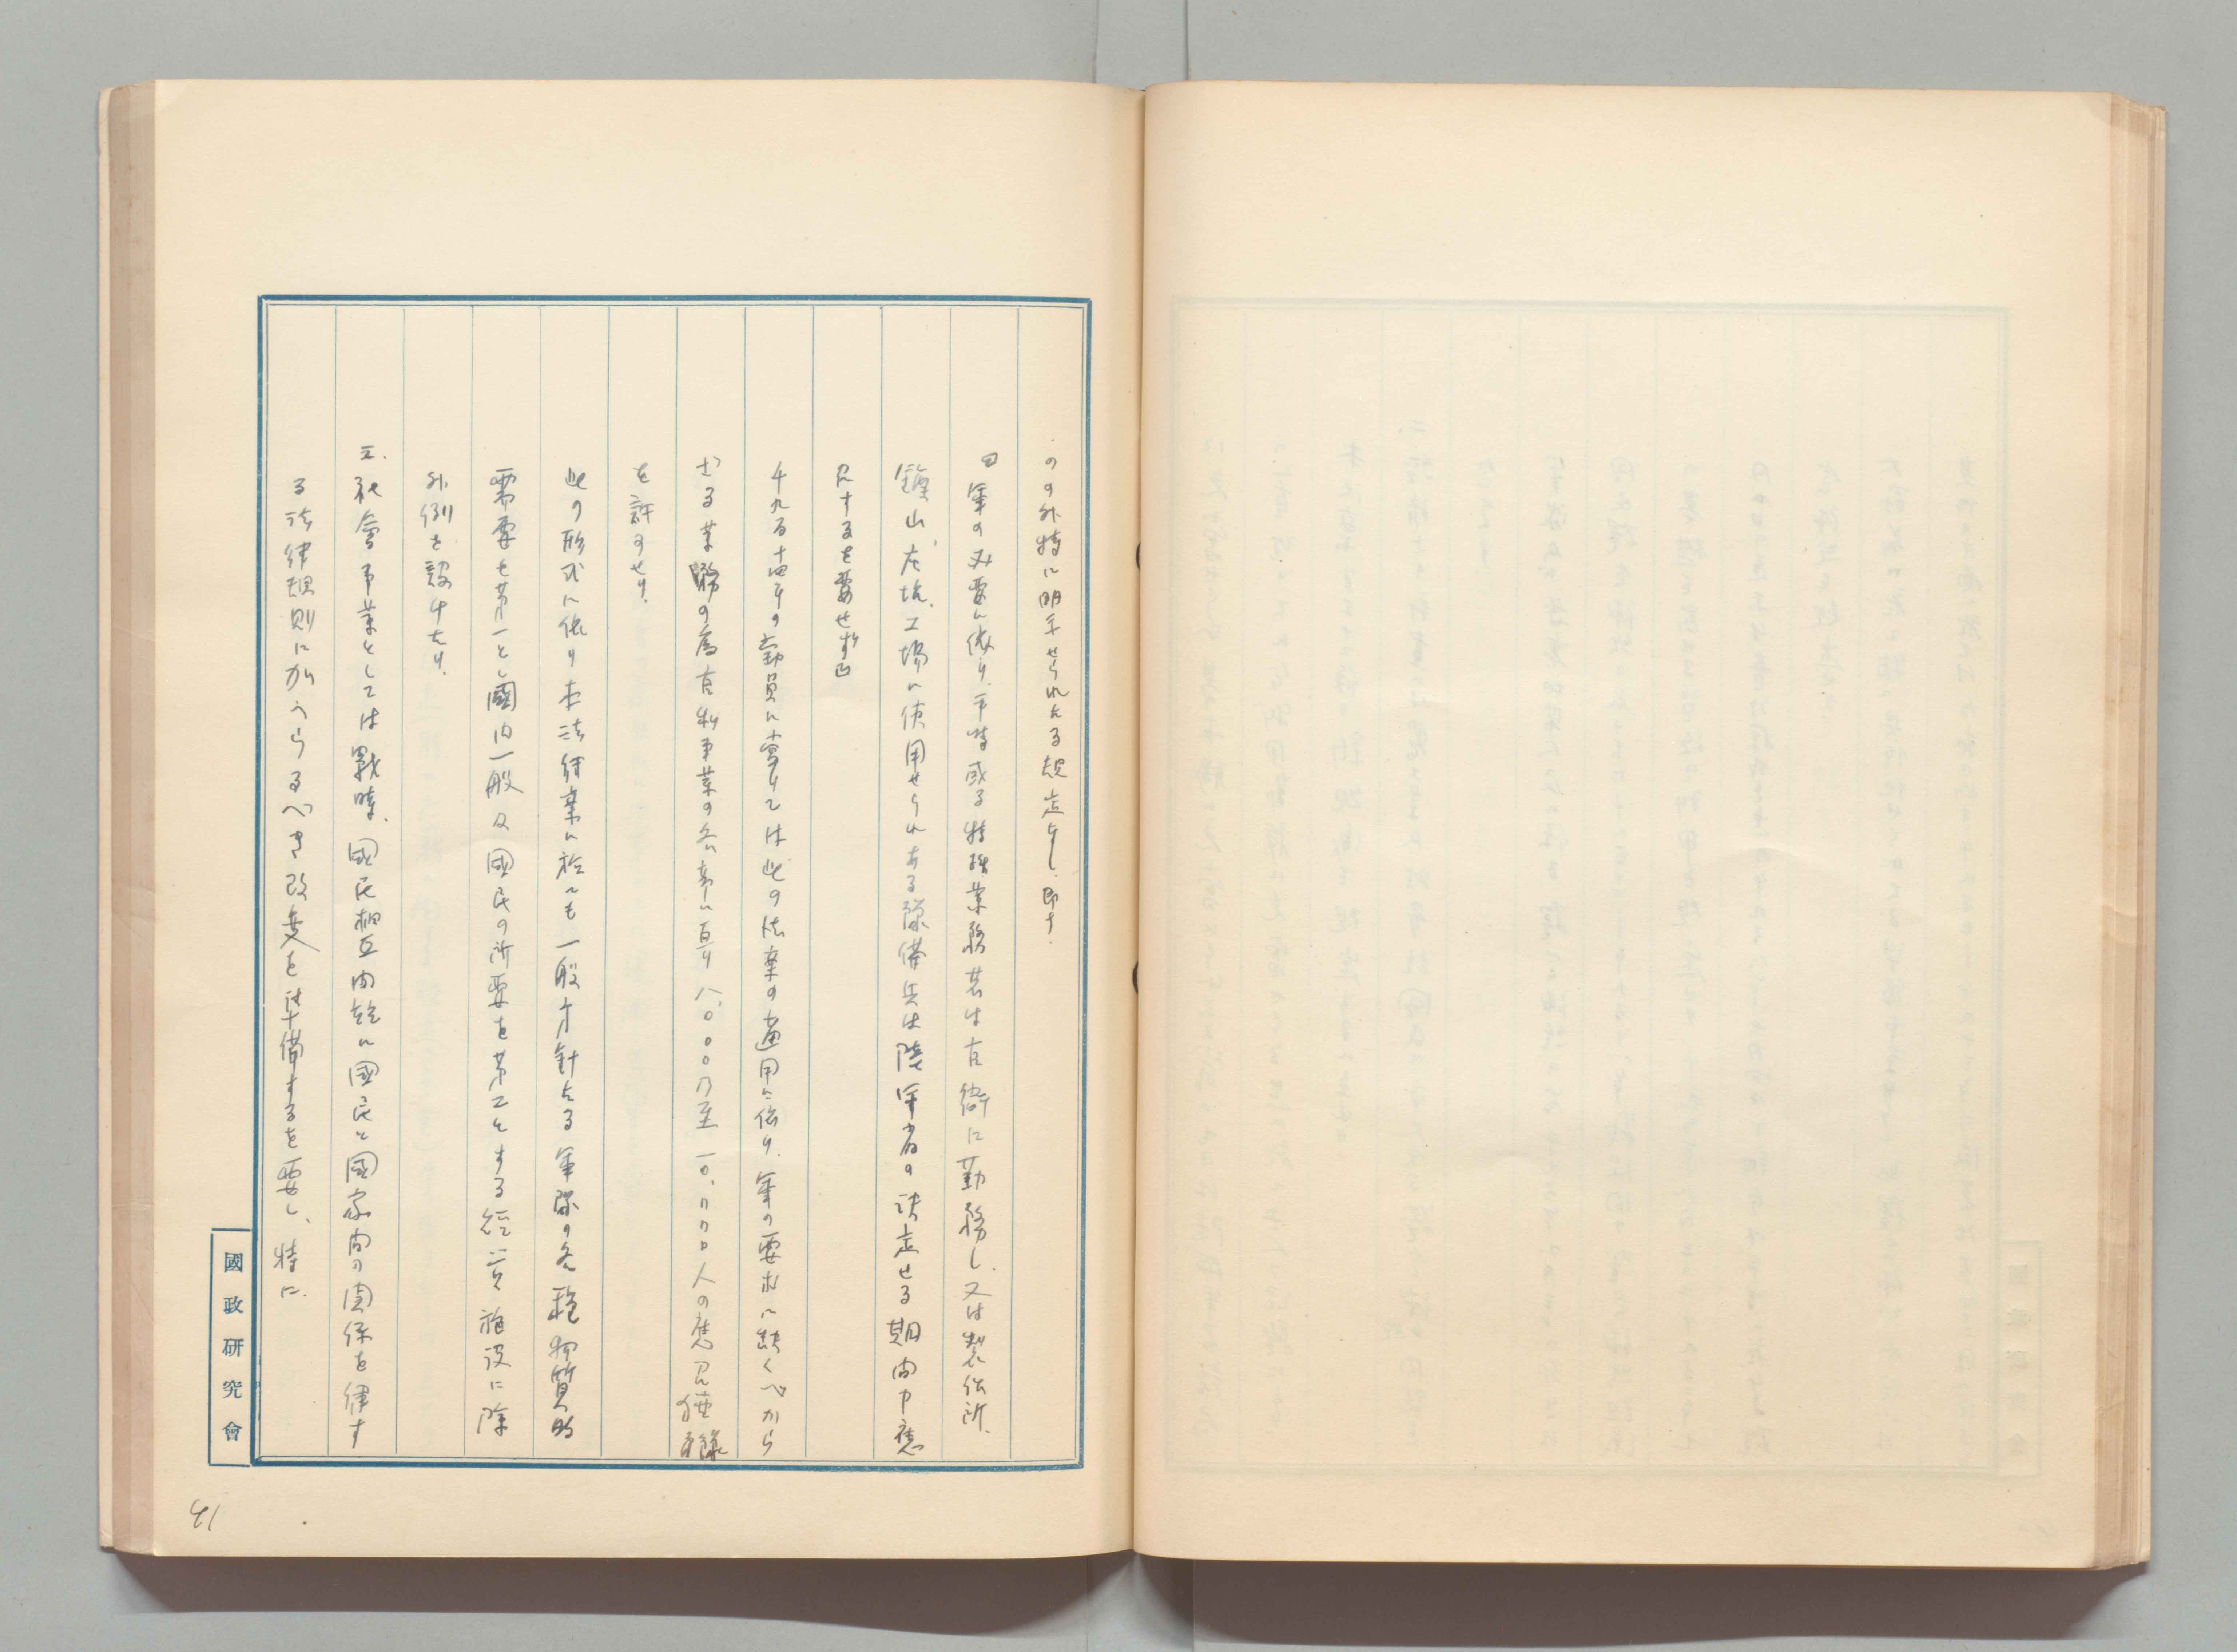 のの外特に明示せられたる規定なし、即ち、
軍の必要に依り、平時或る特殊業務者は官衙に勤務し、又は製作所、
鑛山、炭坑、工場に使用せられある豫備兵は陸軍省の決定せる期間中應
召するを要せず
千九百十四年の動員に當りては此の法案の適用に依り、軍の要求に缺くべから
ざる業務の為官私事業の各部に亘り八、〇〇〇乃至一〇、〇〇〇人の應召猶豫
を許可せり、
此の形式に依り本法律案に於ても一般方針たる軍隊の各種物質的
需要を第一とし國内一般及國民の所要を第二とする経済施設に除
外例を設けたり、
三、社會事業としては戰時、國民相互間竝に國民と國家間の関係を律す
る法律規則に加へらるべき改変を準備するを要し、特に、
國政研究會
41